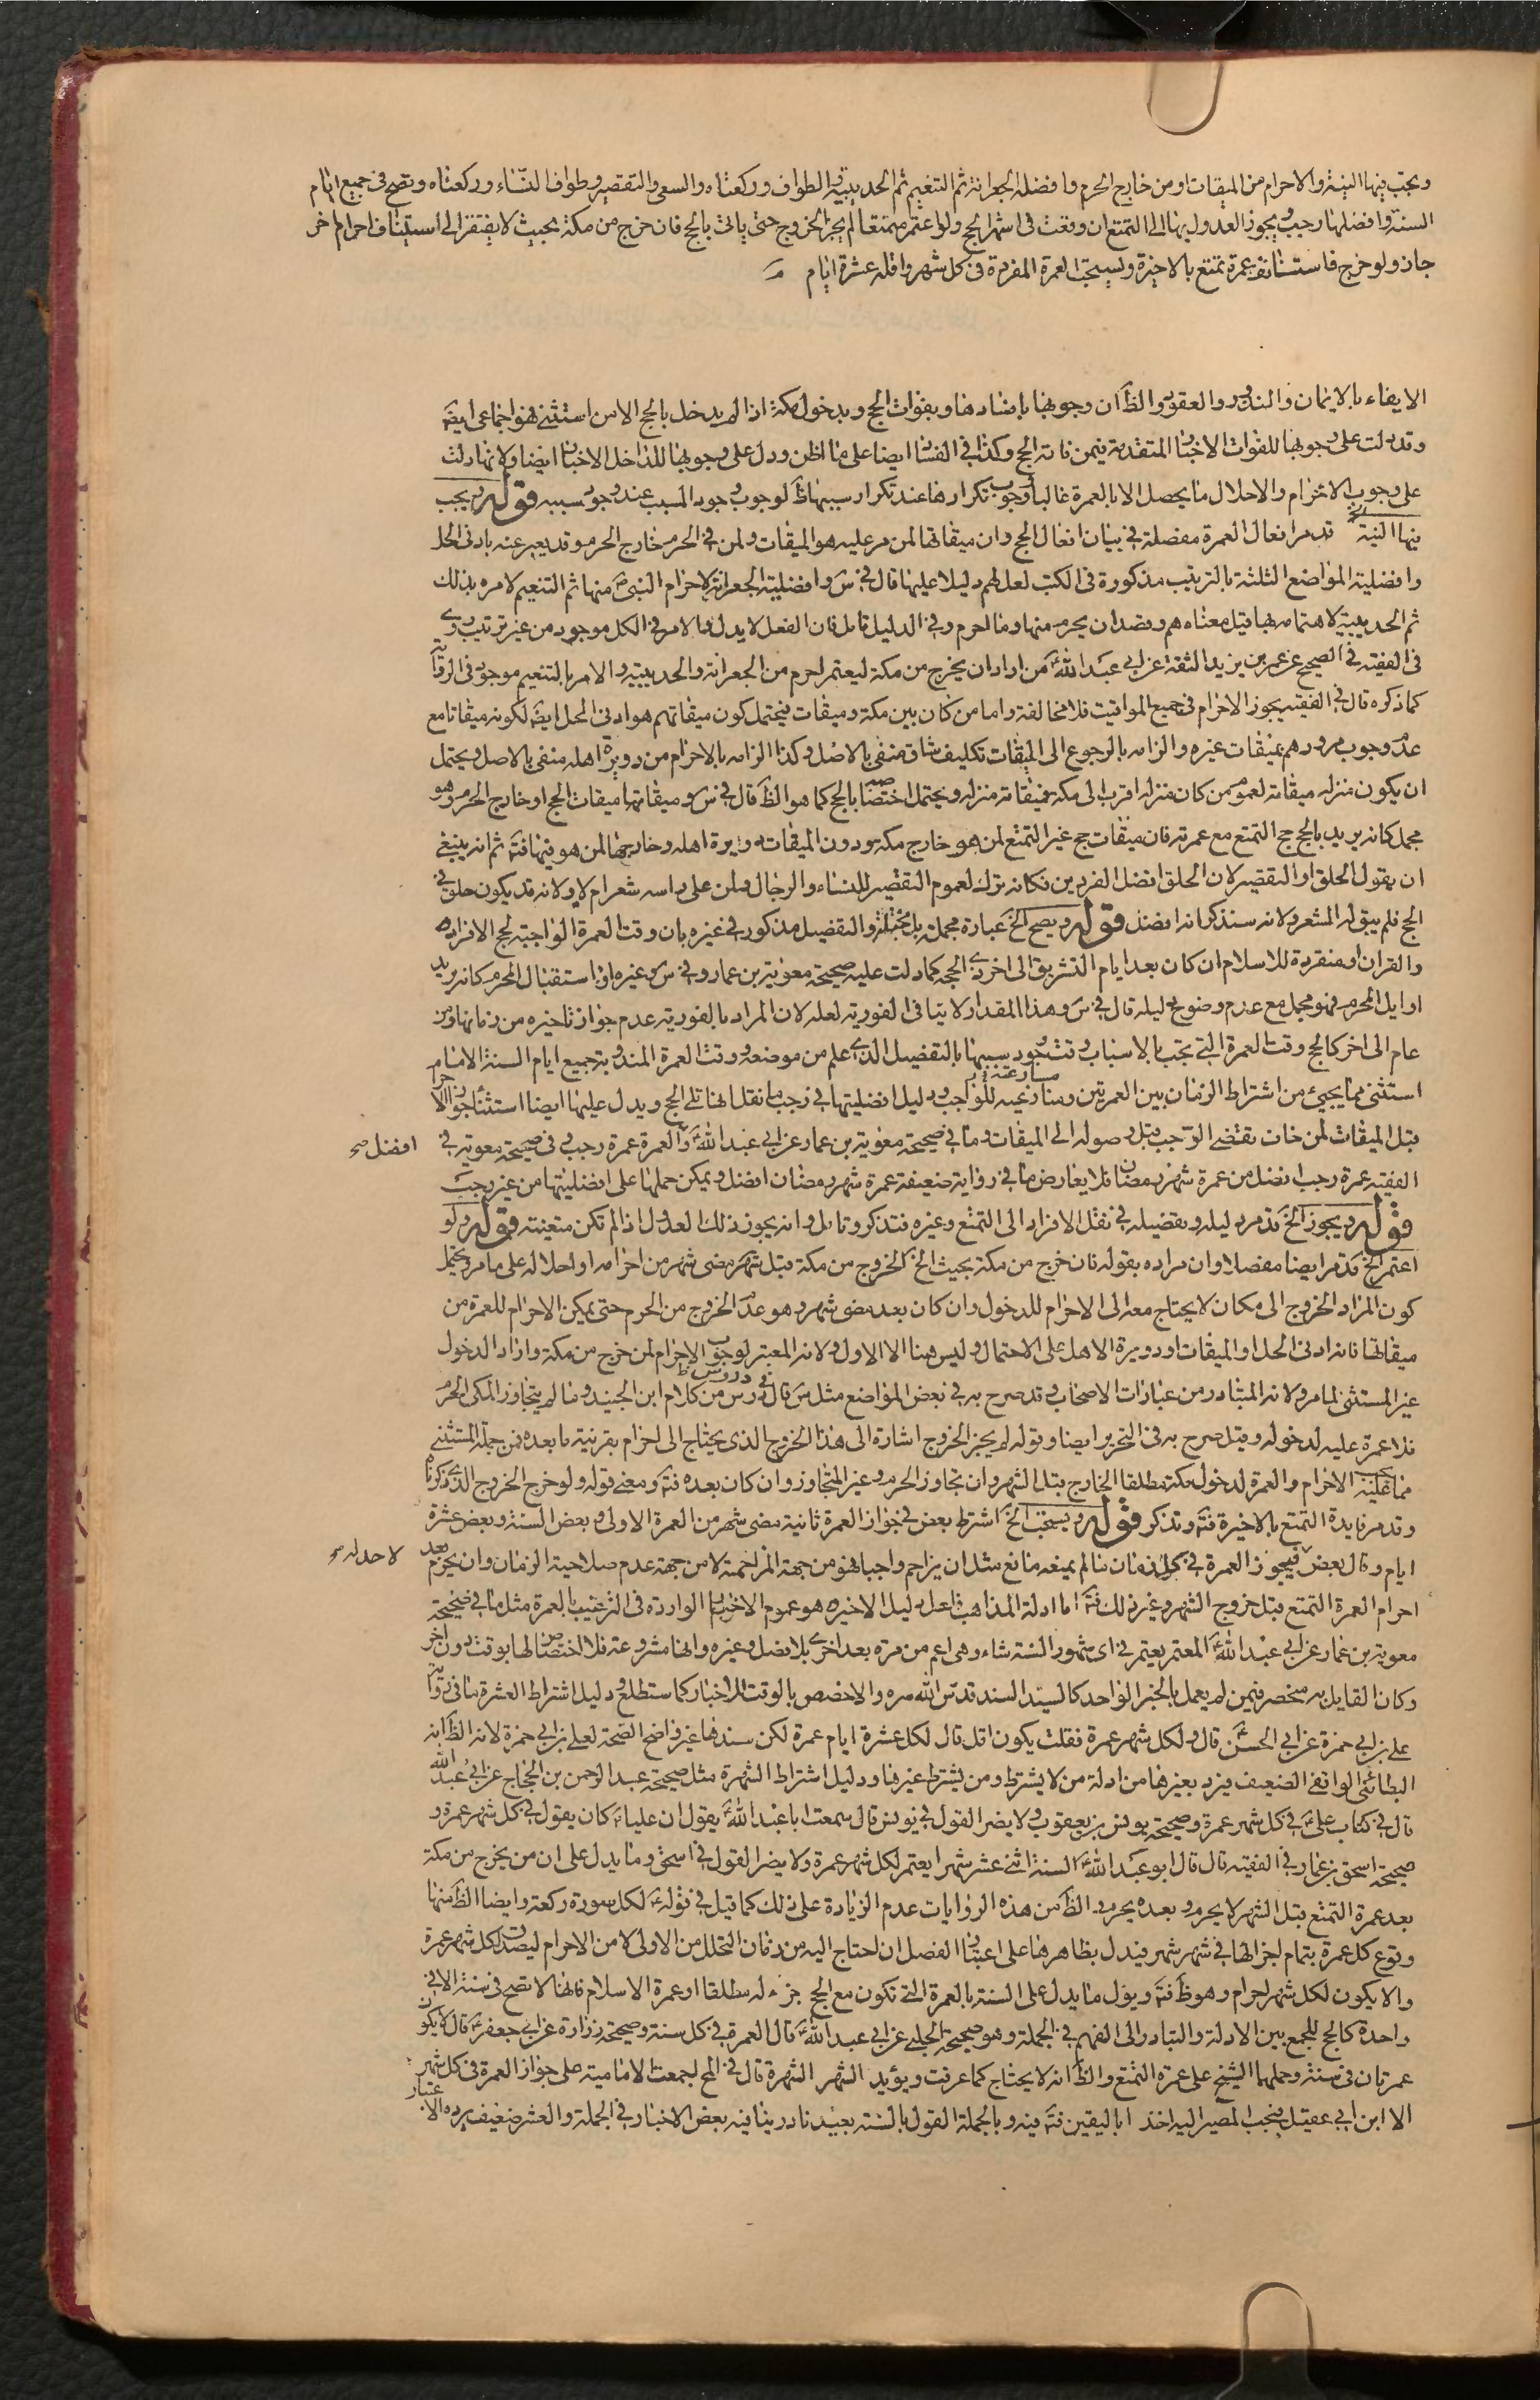 ويجب فيها النية والاحرام من الميقات او من خارج الحرم وافضله الجعرانة ثم التنعيم ثم الحديبية والطواف وركعتاه والسعى والتقصير وطواف النساء وركعتاه وتصح فى جميع ايام
السنة وافضلها رجب ويجوز العدول بها الى التمتع ان وقعت فى اشهر الحج ولو اعتمر متمتعا لم يجز الخروج حتى ياتى بالحج فان خرج من مكة بحيث لا يفتقر الى استيناف احرام اخر
جاز ولو خرج فاستانف عمرة تمتع بالاخيرة ويستحب العمرة المفردة فى كل شهر واقله عشرة ايام
الايفاء بالايمان والنذور والعقود والظ ان وجوبها بافسادها وبفوات الحج وبدخول مكة اذا لم يدخل بالحج الا من استثنى هو اجماعى ايضا
وقد دلت على وجوبها للفوات الاخبار المتقدمة فيمن فاته الحج وكذا فى الفساد ايضا على ما اظن ودل على وجوبها للداخل الاخبار ايضا ولانها دلت
على وجوب الاحرام والاحلال ما يحصل الا بالعمرة غالبا ووجوب تكرارها عند تكرار سببها ظ لوجوب وجود المسبب عند وجود سببه قوله ويجب
فيها النية الخ قد مر افعال العمرة مفصلة فى بيان افعال الحج وان ميقاتها لمن مر عليه هو الميقات ولمن فى الحرم خارج الحرم وقد يعبر عنه بادنى الحل
وافضلية المواضع الثلثة بالترتيب مذكورة فى الكتب لعل لهم دليلا عليها قال فى س وافضلية الجعرانة لاحرام النبى ص منها ثم التنعيم لامره بذلك
ثم الحديبية لاهتمامه بها قيل معناه هم وقصد ان يحرم منها وما احرم وفى الدليل تامل فان الفعل لا يدل والامر فى الكل موجود من غير ترتيب روى
فى الفقيه فى الصحيح عن عمر بن يزيد الثقة عن ابى عبد الله ع من اراد ان يخرج من مكة ليعتمر احرم من الجعرانة والحديبية والامر بالتنعيم موجود فى الرواية
كما ذكره قال فى الفقيه يجوز الاحرام فى جميع المواقيت فلا مخالفة واما من كان بين مكة وميقات فيحتمل كون ميقاتهم هو ادنى الحل ايضا لكونه ميقاتا مع
عدم وجوب مرورهم بميقات غيره والزامه بالرجوع الى الميقات تكليف شاق منفى بالاصل وكذا الزامه بالاحرام من دويرة اهله منفى بالاصل ويحتمل
ان يكون منزله ميقاته لعموم من كان منزله اقرب الى مكة فميقاته منزله ويحتمل اختصاصه بالحج كما هو الظ قال فى س وميقاتها ميقات الحج او خارج الحرم وهو
مجمل كانه يريد بالحج حج التمتع مع عمرته فان ميقات حج غير التمتع لمن هو خارج مكة ودون الميقات دويرة اهله وخارجها لمن هو فيها فتأمل ثم انه ينبغى
ان يقول الحلق او التقصير لان الحلق افضل الفردين فكانه ترك لعموم التقصير للنساء والرجال ولمن على راسه شعر ام لا ولانه قد يكون حلق فى
الحج فلم يبق له الشعر ولانه سنذكر انه افضل قوله ويصح الخ عبارة مجملة والتفصيل مذكور فى غيره بان وقت العمرة الواجبة لحج الافراد
والقران او منفردة للاسلام ان كان بعد ايام التشريق الى اخر ذى الحجة كما دلت عليه صحيحة معوية بن عمار وفى س وغيره او استقبال المحرم كانه يريد
اوايل المحرم فهو مجمل مع عدم وضوح دليله قال فى س وهذا المقدار لا ينافى الفورية لعله لان المراد بالفورية عدم جواز تاخيره من زمانها ومن
عام الى اخر كالحج وقت العمرة التى يجب بالاسباب وقت وجود سببها بالتفصيل الذى علم من موضعه ووقت العمرة المندوبة جميع ايام السنة الا ما مر
استثنى مما يجيئ من اشتراط الزمان بين العمرتين ومسارعته للواجب ودليل افضليتها فى رجب ما نقل انها تلى الحج ويدل عليها ايضا استثناء جواز الاحرام
قبل الميقات لمن خاف تقضى الرجب قبل وصوله الى الميقات وما فى صحيحة معوية بن عمار عن ابى عبد الله ع وافضل العمرة عمرة رجب وفى صحيحة معوية فى
افضل صح
الفقيه عمرة رجب افضل من عمرة شهر رمضان فلا يعارض ما فى رواية ضعيفة عمرة شهر رمضان افضل ويمكن حملها على افضليتها من غير رجب
قوله ويجوز الخ قد مر دليله وتفصيله فى نقل الافراد الى التمتع وغيره فتذكر وتامل وانه يجوز ذلك العدول اذا لم تكن متعينة قوله ولو
اعتمر الخ قد مر ايضا مفصلا وان مراده بقوله فان خرج من مكة بحيث الخ الخروج من مكة قبل شهر مضى شهر من احرامه او احلاله على ما مر ويحتمل
كون المراد الخروج الى مكان لا يحتاج معه الى الاحرام للدخول وان كان بعد مضى شهر وهو عدم الخروج من الحرم حتى يمكن الاحرام للعمرة من
ميقاتها فانه ادنى الحل او الميقات او دويرة الاهل على الاحتمال وليس هنا الا الاول ولانه المعتبر لوجوب الاحرام لمن خرج من مكة واراد الدخول
دروس
غير المستثنى لما مر ولانه المتبادر من عبارات الاصحاب وقد صرح به فى بعض المواضع مثل س قال فى رس من كلام ابن الجنيد وما لم يتجاوز المكى الحرم
فلا عمرة عليه لدخوله وقيل صرح به فى التحرير ايضا وقوله لم يجز الخروج اشارة الى هذا الخروج الذى يحتاج الى احرام بقرينة ما بعده فمن جملة المستثنى
مما عليه الاحرام والعمرة لدخول مكة مطلقا الخارج قبل الشهر وان تجاوز الحرم وغير المتجاوز وان كان بعده فتأمل ومعنى قوله ولو خرج الخروج الذى ذكرناه
وقد مر فايدة التمتع بالاخيرة فتأمل وتذكر قوله ويستحب الخ اشترط بعض فى جواز العمرة ثانية مضى شهر من العمرة الاولى وبعض السنة وبعض عشرة
ايام وقال بعض فيجوز العمرة فى كل زمان ما لم يمنعه مانع مثل ان يزاحم واجبا فهو من جهة المزاحمة لا من جهة عدم صلاحية الزمان وان يحرم بعد
لا حد له صح
احرام العمرة التمتع قبل خروج الشهر وغير ذلك فتأمل اما ادلة المذاهب فلعل دليل الاخير هو عموم الاخبار الواردة فى الترغيب بالعمرة مثل ما فى صحيحة
معوية بن عمار عن ابى عبد الله ع المعتمر يعتمر فى اى شهور السنة شاء وهى اعم من مرة بعد اخرى بلا فصل وغيره وانها مشروعة فلا اختصاص لها بوقت دون اخر
وكان القايل به منحصر فيمن لم يعمل بالخبر الواحد كالسيد السند قدس الله سره والا خصص بالوقت للاخبار كما ستطلع ودليل اشتراط العشرة ما فى رواية
على بن ابى حمزة عن ابى الحسن ع قال ولكل شهر عمرة فقلت يكون اقل قال لكل عشرة ايام عمرة لكن سندها غير واضح الصحة لعلى بن ابى حمزة لانه الظ انه
البطائنى الواقفى الضعيف فيرد بغيرها من ادلة من لا يشترط ومن يشترط غيرها ودليل اشتراط الشهرة مثل صحيحة عبد الرحمن بن الحجاج عن ابى عبد الله
قال فى كتاب على ع فى كل شهر عمرة وصحيحة يونس بن يعقوب ولا يضر القول فى يونس قال سمعت ابا عبد الله ع يقول ان عليا ع كان يقول فى كل شهر عمرة و
صحيحة اسحق بن عمار فى الفقيه قال قال ابو عبد الله ع السنة اثنى عشر شهرا يعتمر لكل شهر عمرة ولا يضر القول فى اسحق وما يدل على ان من يخرج من مكة
بعد عمرة التمتع قبل الشهر لا يحرم وبعده يحرم والظ من هذه الروايات عدم الزيادة على ذلك كما قيل فى قوله لكل سورة ركعة وايضا الظ منها
وقوع كل عمرة بتمام اجزائها فى شهر شهر فيدل بظاهرها على اعتبار الفصل ان احتاج اليه من زمان التحلل من الاولى لا من الاحرام ليصدق لكل شهر عمرة
والا يكون لكل شهر احرام وهو ظ فتأمل ويؤل ما يدل على السنة بالعمرة التى تكون مع الحج جزء له مطلقا او عمرة الاسلام فانها لا تصح فى سنة الا فى
واحدة كالحج للجمع بين الادلة والتبادر الى الفهم فى الجملة وهو صحيحة الحلبى عن ابى عبد الله ع قال العمرة فى كل سنة وصحيحة زرارة عن ابى جعفر ع قال لا يكون
عمرتان فى سنة وحملهما الشيخ على عمرة التمتع والظ انه لا يحتاج كما عرفت ويؤيد الشهر الشهرة قال فى المخ اجمعت الامامية على جواز العمرة فى كل شهر
الا ابن ابى عقيل فيجب المصير اليه اخذا باليقين فتأمل فيه وبالجملة القول بالسنة بعيد نادر ينافيه بعض الاخبار فى الجملة والعشر ضعيف يرده الاعتبار